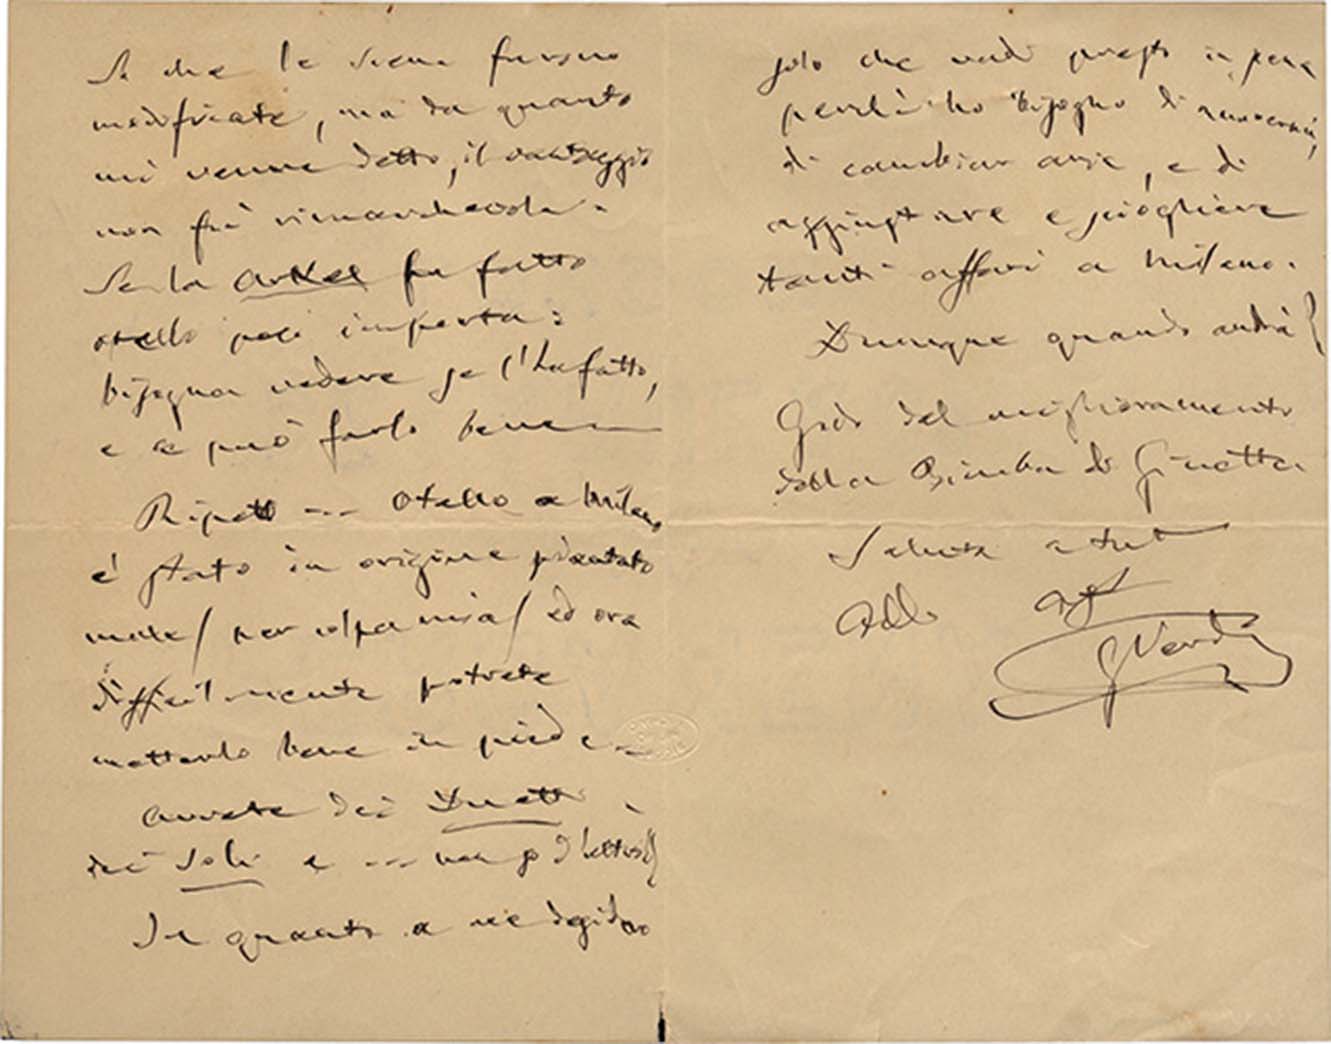 So che le scene furono
modificate, ma da quanto
mi venne detto, il vantaggio
non fù rimarchevole.
Se la Arkel ha fatto
otello poco importa:
bisogna vedere se l'ha fatto,
e se può farlo bene
Ripeto --- Otello a Milano
è stato in origine piantato
male/ per colpa mia/ ed ora
difficilmente potrete
metterlo bene in piedi
Avrete dei Duetti,
dei Soli e --- non
In quanto a me desidero
solo che vada presto in
perché ho bisogno di
di cambiar aria, e di
aggiustare e sciogliere
tanti affari a Milano.
Dunque quando andrà?
Godo del miglioramento
della Bimba di Ginetta.
Saluta a tutti
Add. aff
G Verdi